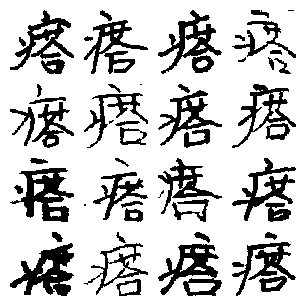 瘩瘩瘩瘩
瘩瘩瘩瘩
瘩瘩瘩瘩
瘩瘩瘩瘩